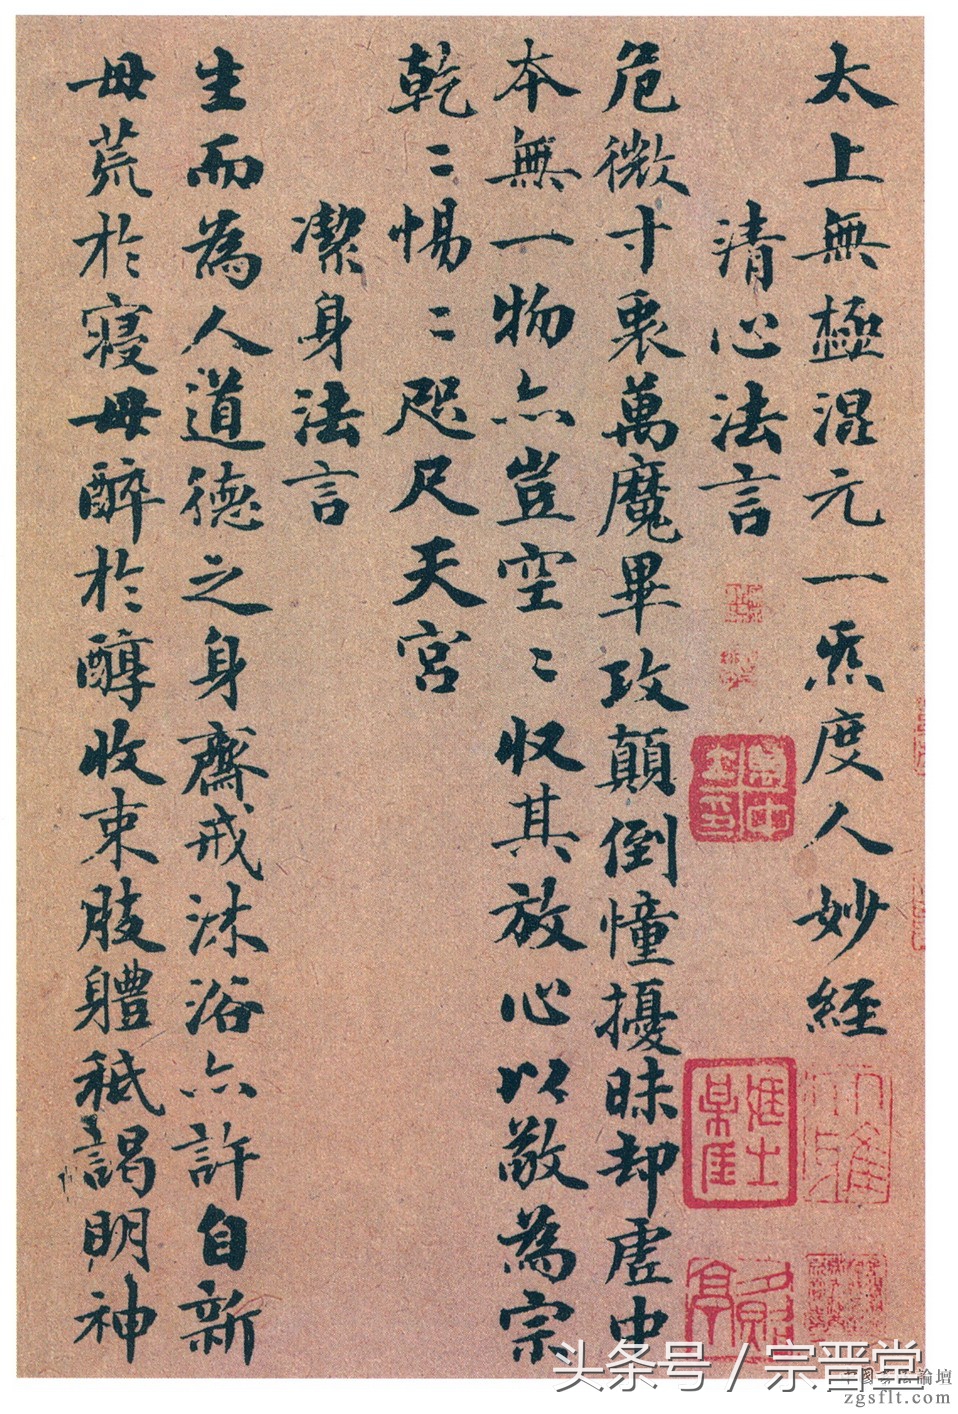 太上無極混元一炁度人妙經
清心法言
危微寸衷萬魔畢攻顛倒憧擾昧却虛中
本無一物亦豈空〻収其放心以敬為宗
乾〻惕〻咫尺天宮
潔身法言
生而為人道德之身齋戒沐浴亦許自新
毋荒於寢毋醉於醇收束肢體秪謁明神
头条号 / 宗晋堂
zgsflt.com